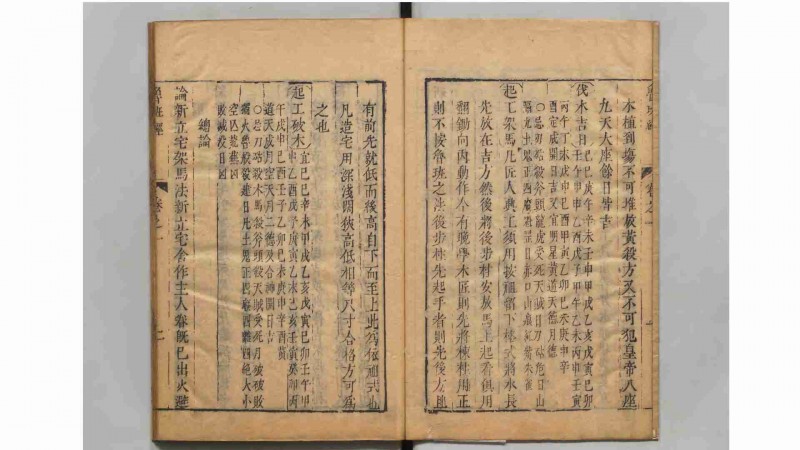 木植到塲不可堆放黃殺方又不可犯皇帝八座
九天大座餘日皆吉
伐木吉日
己巳庚午辛未壬申甲戌乙亥戊寅己卯
壬午甲申乙酉戊子甲午乙未丙申壬寅
丙午丁未戊申己酉甲寅乙卯己未庚申辛
酉定成開日吉又宜明星黃道天德月德
○忌刀砧殺斧頭龍虎受死天賊日刀砧危日山
起工架馬
凡匠人興工須用按祖留下格式將木長
先放在吉方然後將後步柱安放馬上起看俱用
翻鋤向內動作今有晚學木匠則先將棟柱用正
則不按魯班之法後步柱先起手者則先後方且
有前先就低而後高自下而至上此為依祖式也
凡造宅用深淺闊狹高低相等尺寸合格方可為
之也
起工破木
己巳辛未甲戌乙亥戊寅己卯壬午甲
申乙酉戊子庚寅乙未己亥壬寅癸卯丙
午戊申己酉壬子乙卯己未庚申辛酉黃
道天成月空天月二德及合神開日吉
○忌刀砧殺木馬殺斧頭殺天賊受死月破破敗
空亡
總論
論新立宅架馬法新立宅舍作主人眷既已出火避
魯班經
卷之一
二
魯班經
卷之一